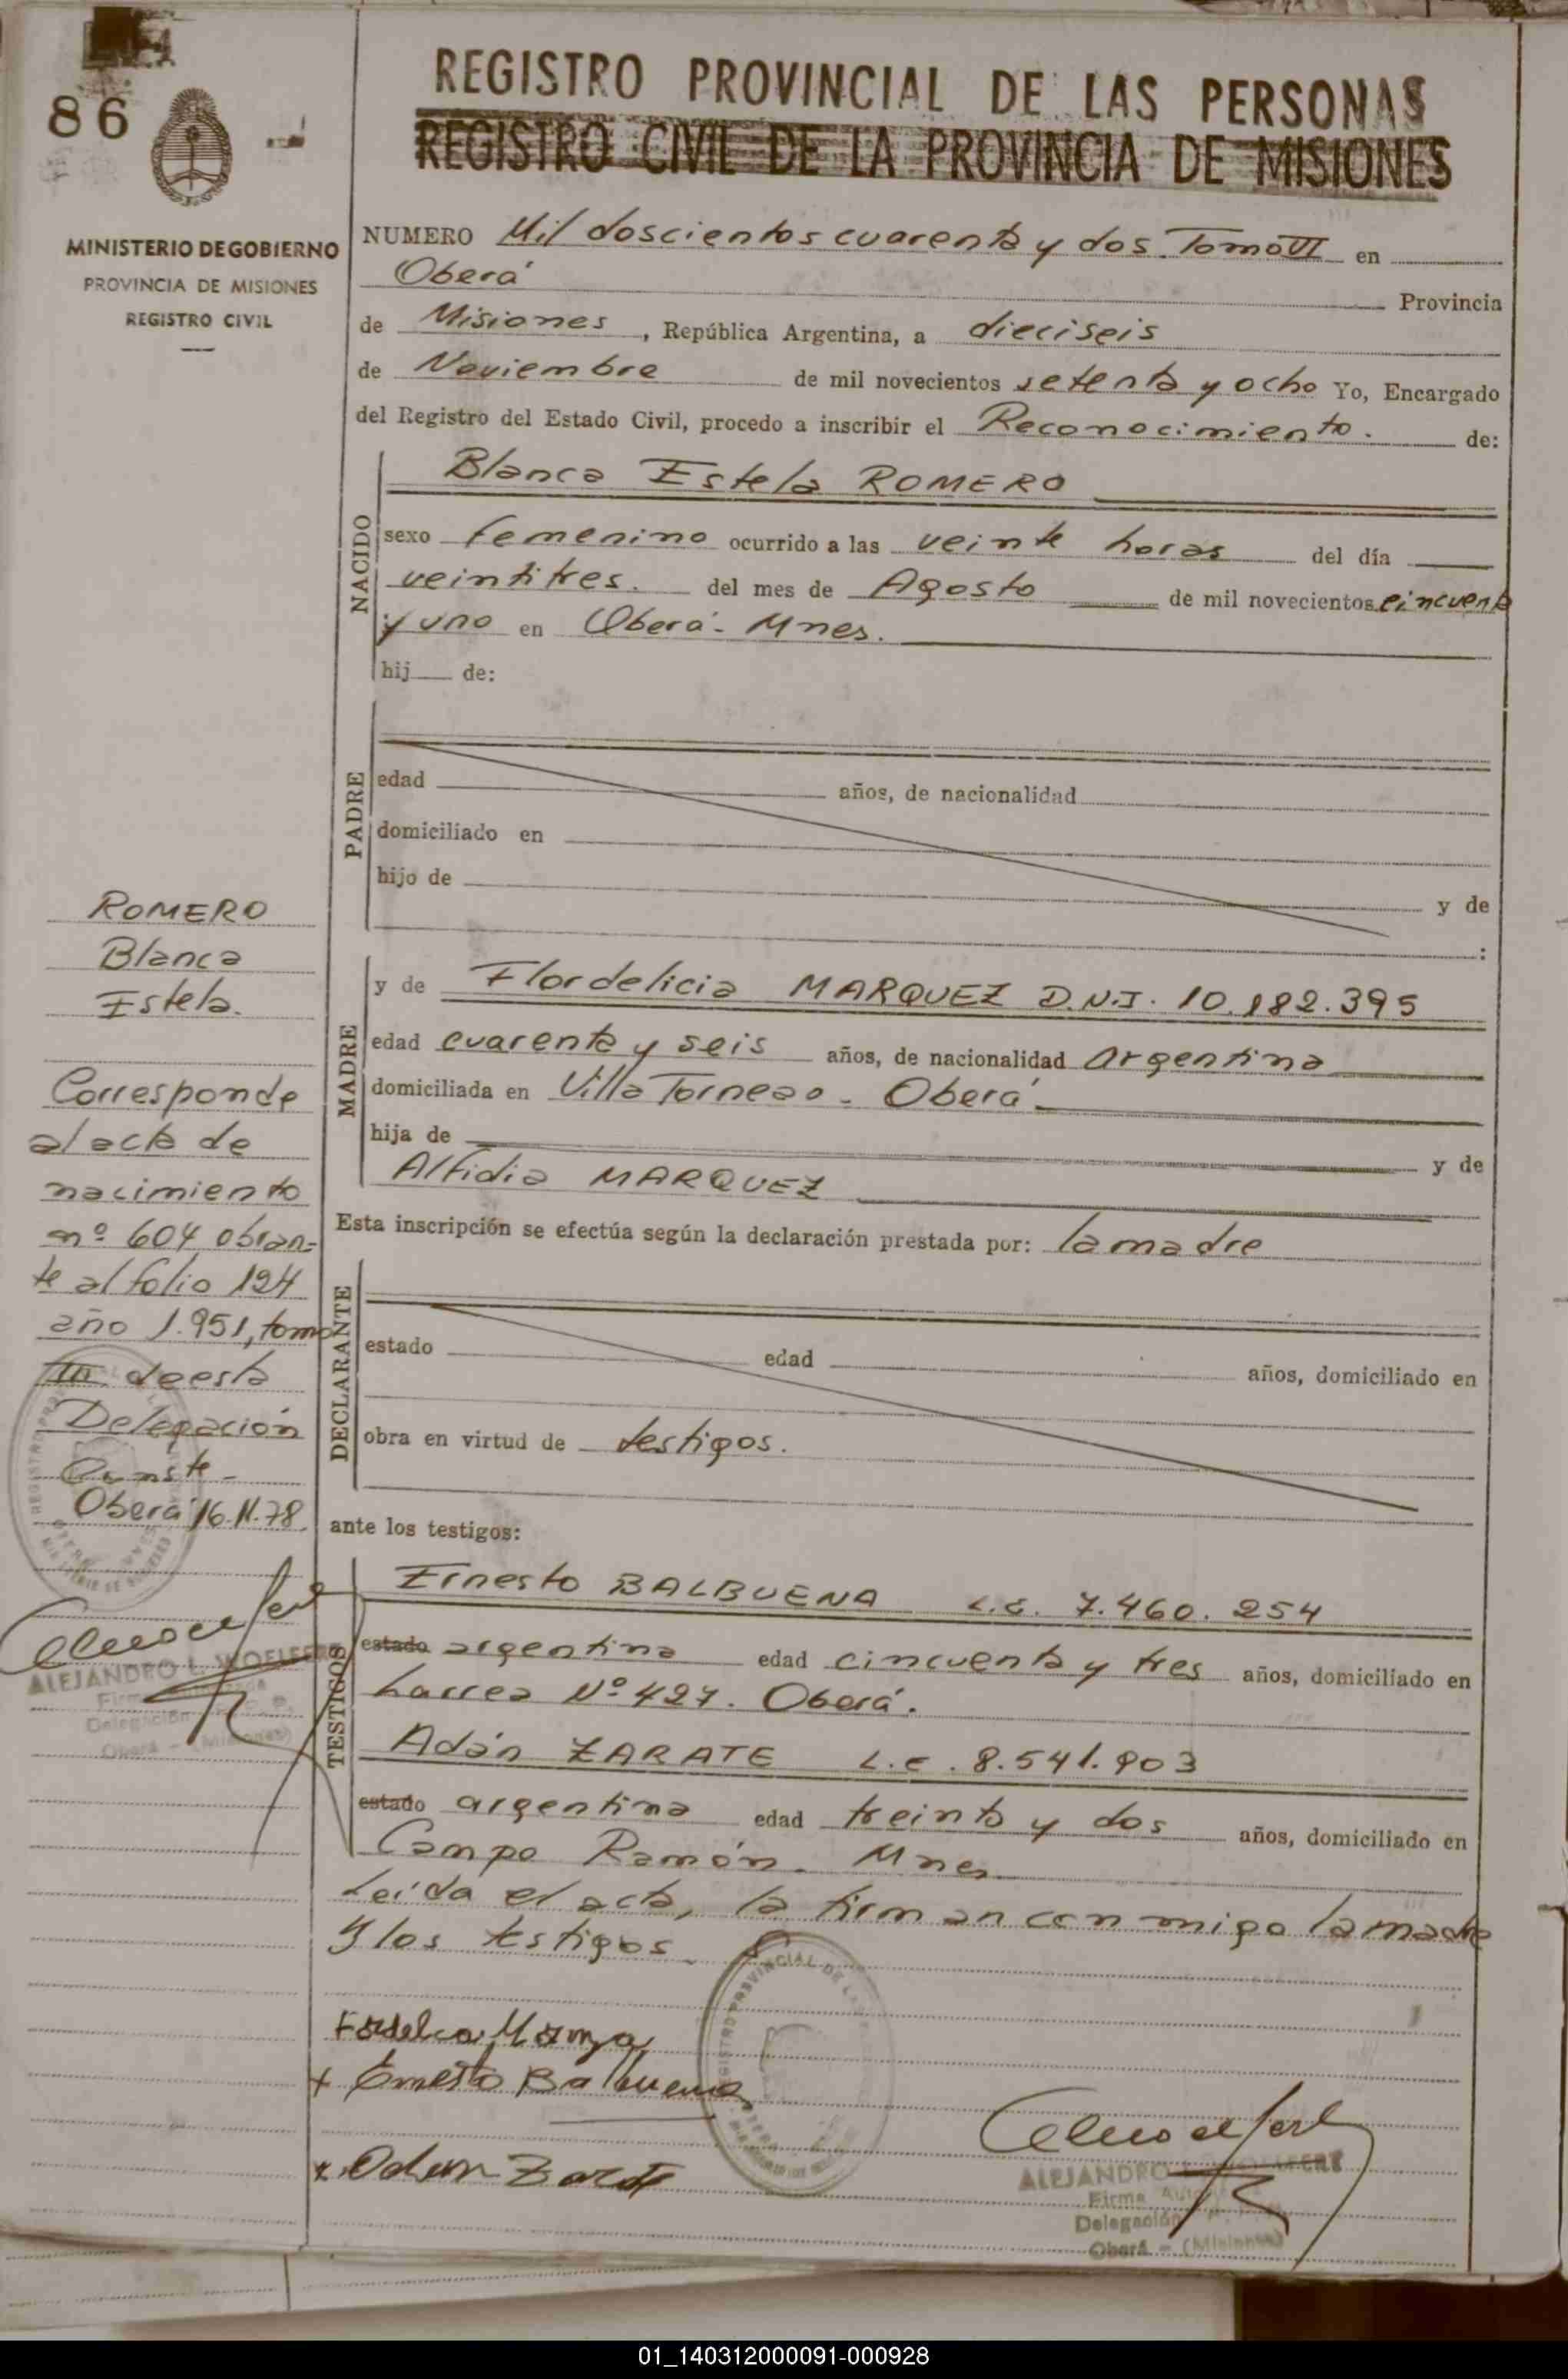 86
MINISTERIO DE GOBIERNO
PROVINCIA DE MISIONES
REGISTRO CIVIL
REGISTRO PROVINCIAL DE LAS PERSONAS
REGISTRO CIVIL DE LA PROVINCIA DE MISIONES
NUMERO Mil doscientos cuarenta y dos. Tomo VI en
Oberá Provincia
de Misiones, República Argentina, a dieciseis
de Noviembre de mil novecientos setenta y ocho Yo, Encargado
del Registro del Estado Civil, procedo a inscribir el Reconocimiento. de:
NACIDO
Blanca Estela ROMERO
sexo femenino ocurrido a las veinte horas del día
veintitres. del mes de Agosto de mil novecientos cincuenta
y uno en Oberá - Mnes.
hij de:
PADRE
edad años, de nacionalidad
domiciliado en
hijo de y de
:
MADRE
y de Flordelicia MARQUEZ D.N.I. 10.182.395
edad cuarenta y seis años, de nacionalidad argentina
domiciliada en Villa Torneao - Oberá
hija de y de
Alfidia MARQUEZ
Esta inscripción se efectúa según la declaración prestada por: la madre
DECLARANTE
estado edad años, domiciliado en
obra en virtud de testigos.
ante los testigos:
TESTIGOS
Ernesto BALBUENA L.E. 7.460.254
estado argentina edad cincuenta y tres años, domiciliado en
Larrea Nº 427. Oberá.
Adán ZARATE L.E. 8.541.903
estado argentina edad treinta y dos años, domiciliado en
Campo Ramón. Mnes
Leída el acta, la firman conmigo la madre
y los testigos.
Ernesto Balbuena
ALEJANDRO L. WOELFERT
Firma Autorizada
Delegación
Oberá - (Misiones)
ROMERO
Blanca
Estela.
Corresponde
al acta de
nacimiento
nº 604 obran-
te al folio 124
año 1.951, tomo
III de esta
Delegación
Conste -
Oberá 16.11.78.
ALEJANDRO L. WOELFERT
Firma Autorizada
Delegación
Oberá - (Misiones)
01_140312000091-000928